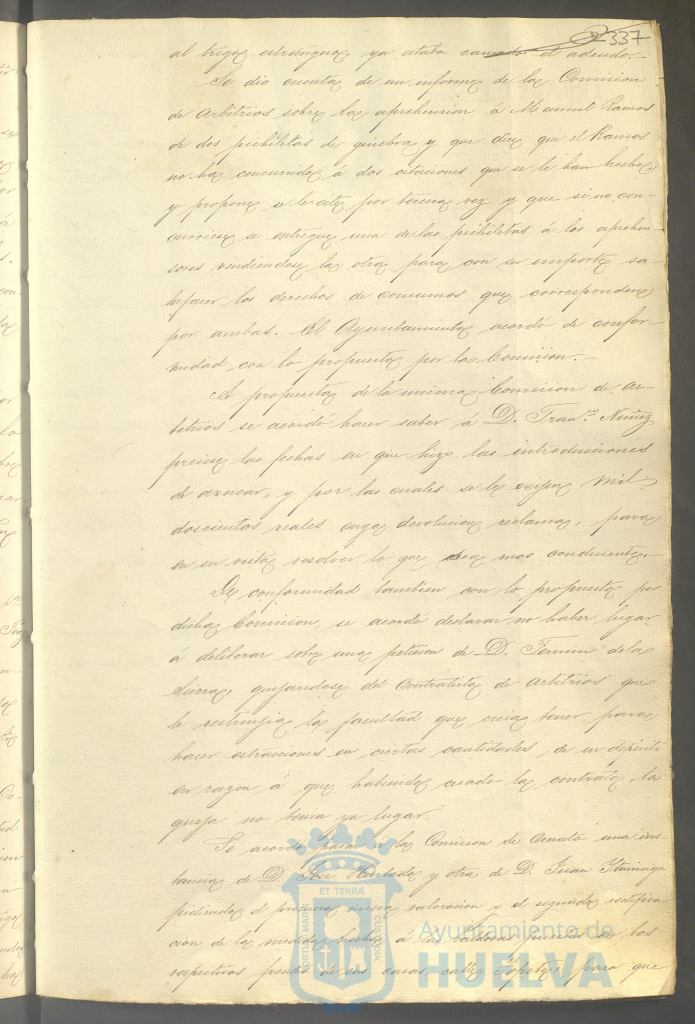 337
al trigo extrangero ya estaba causado el adeudo.-
Se dio cuenta de un informe de la Comision
de arbitrios sobre la aprehension á Manuel Ramos
de dos pichiletas de ginebra y que dice que el Ramos
no ha concurrido á dos citaciones que se le han hecho
y propone se le cite por tercera vez y que si no con-
curriese se entregue una de las pichiletas á los aprehen-
sores vendiendose la otra para con su importe sa-
tisfacer los derechos de consumos que corresponden
por ambas. El Ayuntamiento acordó de confor-
midad con lo propuesto por la Comision.-
A propuesta de la misma Comision de ar-
bitrios se acordó hacer saber á D. Fran.co Nuñez
precise las fechas en que hizo las introducciones
de azucar, y por las cuales se le exijen mil
doscientos reales cuya devolucion reclama, para
en su vista resolver lo que sea mas conducente.-
De conformidad tambien con lo propuesto por
dicha Comision, se acordó declarar no haber lugar
á deliberar sobre una peticion de D. Fermin de la
Sierra, quejandose del Contratista de arbitrios que
le restringia la facultad que creia tener para
hacer estracciones en ciertas cantidades de su depósito
en razon á que habiendo cesado la contrata, la
queja no tenia ya lugar.
Se acordó pasar á la Comision de Ornato una ins-
tancia de D. José Hurtado y otra de D. Juan
pidiendo el primero nueva valoracion y el segundo rectifica-
cion de la medida hecha á las puestas en los
respectivos frentes de sus casas, calle Topete, para que
PORTUS MARIS
ET TERRÆ
CUSTODIA
Ayuntamiento de
HUELVA